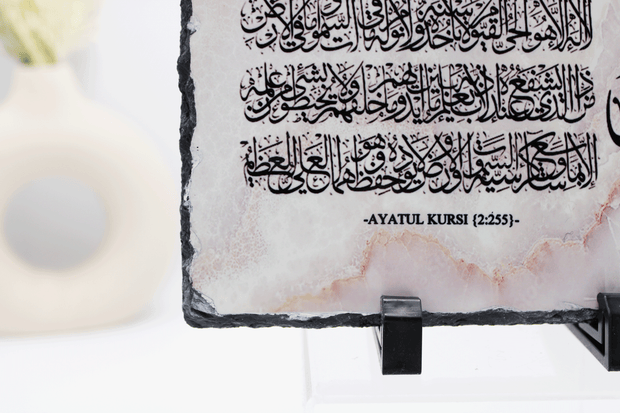 لا إله إلا هو الحي القيوم لا تأخذه سنة ولا نوم له ما في السموات وما في الأرض
من ذا الذي يشفع عنده إلا بإذنه يعلم ما بين أيديهم وما خلفهم ولا يحيطون بشيء من علمه
إلا بما شاء وسع كرسيه السموات والأرض ولا يؤده حفظهما وهو العلي العظيم
-AYATUL KURSI {2:255}-